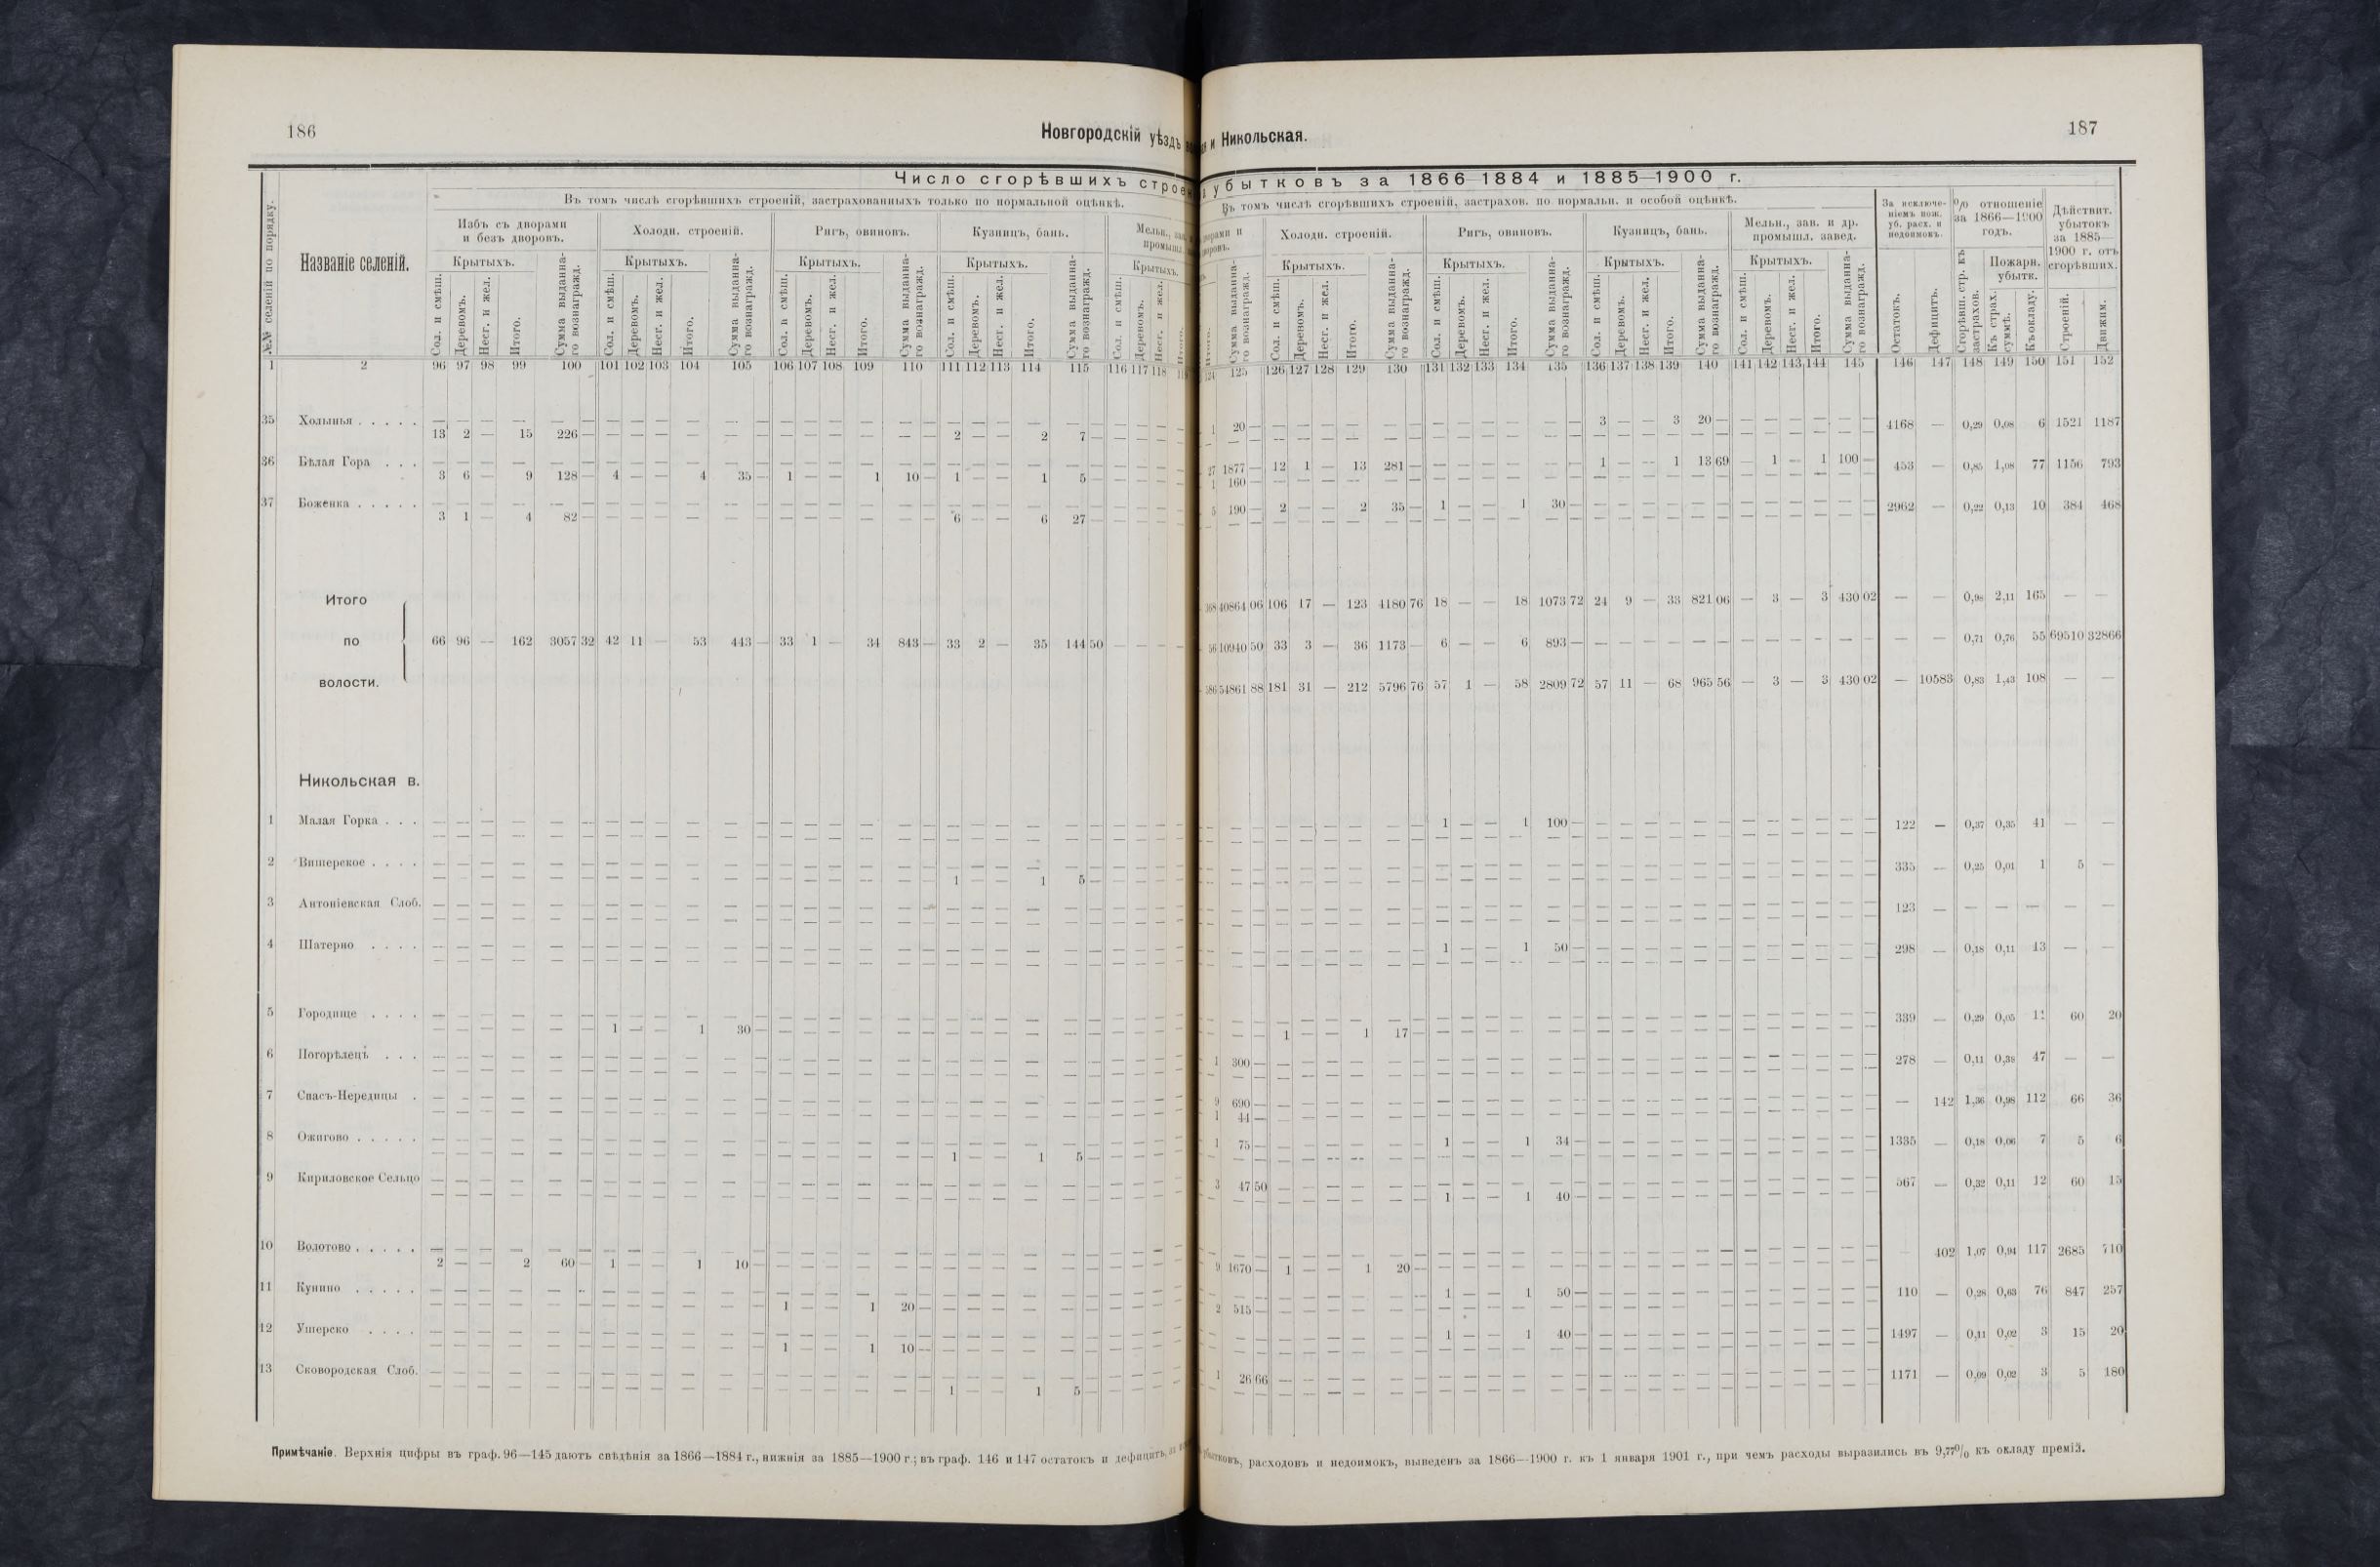 186
Новгородскій уѣздъ
Число сгорѣвшихъ
Въ томъ числѣ сгорѣвшихъ строеній, застрахованныхъ только по нормальной оцѣнкѣ.
№№ селеній по порядку.
Названіе селеній.
Избъ съ дворами и безъ дворовъ.
Холодн. строеній.
Ригъ, овиновъ.
Кузницъ, бань.
Крытыхъ. Крытыхъ. Крытыхъ. Крытыхъ. Крытыхъ.
Сол. и смѣш. Деревомъ. Несг. и жел. Итого. Сумма выданна-го вознагражд. Сол. и смѣш. Деревомъ. Несг. и жел. Итого. Сумма выданна-го вознагражд. Сол. и смѣш. Деревомъ. Несг. и жел. Итого. Сумма выданна-го вознагражд. Сол. и смѣш. Деревомъ. Несг. и жел. Итого. Сумма выданна-го вознагражд. Сол. и смѣш. Деревомъ. Несг. и жел.
1 2 96 97 98 99 100 101 102 103 104 105 106 107 108 109 110 111 112 113 114 115 116 117 118
35 Холынья . . . . .
13 2 — 15 226 — — — — — — — — — — — 2 — — 2 7 —
36 Бѣлая Гора . . .
3 6 — 9 128 — 4 — — 4 35 — 1 — — 1 10 — 1 — — 1 5 —
37 Боженка . . . . .
3 1 — 4 82 — — — — — — — — — — — 6 — — 6 27 —
Итого
по 66 96 — 162 3057 32 42 11 — 53 443 — 33 1 — 34 843 — 33 2 — 35 144 50
волости.
Никольская в.
1 Малая Горка . . .
2 Вишерское . . . .
1 — — 1 5 —
3 Антоніевская Слоб.
4 Шатерно . . . .
5 Городище . . . .
1 — — 1 30 —
6 Погорѣлецъ . . .
7 Спасъ-Нередицы .
8 Ожигово . . . . .
1 — — 1 5 —
9 Кириловское Сельцо
10 Волотово . . . . .
2 — — 2 60 — 1 — — 1 10 —
11 Кунино . . . . .
1 — — 1 20 —
12 Ушерско . . . .
1 — — 1 10 —
13 Сковородская Слоб.
1 — — 1 5 —
Примѣчаніе. Верхнія цифры въ граф. 96—145 даютъ свѣдѣнія за 1866—1884 г., нижнія за 1885—1900 г.; въ граф. 146 и 147 остатокъ и дефицитъ,
и Никольская.
187
убытковъ за 1866—1884 и 1885—1900 г.
Въ томъ числѣ сгорѣвшихъ строеній, застрахов. по нормальн. и особой оцѣнкѣ.
Холодн. строеній.
Ригъ, овиновъ.
Кузницъ, бань.
Мельн., зав. и др. промышл. завед.
За исключе-ніемъ пож. уб. расх. и недоимокъ.
% отношеніе за 1866—1900 годъ.
Дѣйствит. убытокъ за 1885—1900 г. отъ сгорѣвших.
Крытыхъ. Крытыхъ. Крытыхъ. Крытыхъ.
Пожарн. убытк.
Сумма выданна-го вознагражд. Сол. и смѣш. Деревомъ. Несг. и жел. Итого. Сумма выданна-го вознагражд. Сол. и смѣш. Деревомъ. Несг. и жел. Итого. Сумма выданна-го вознагражд. Сол. и смѣш. Деревомъ. Несг. и жел. Итого. Сумма выданна-го вознагражд. Сол. и смѣш. Деревомъ. Несг. и жел. Итого. Сумма выданна-го вознагражд. Остатокъ. Дефицитъ. Сгорѣвш. стр. къ застрахов. Къ страх. суммѣ. Къ окладу. Строеній. Движим.
124 125 126 127 128 129 130 131 132 133 134 135 136 137 138 139 140 141 142 143 144 145 146 147 148 149 150 151 152
1 20 — 3 — — 3 20 — 4168 — 0,29 0,08 6 1521 1187
27 1877 — 12 1 — 13 281 — 1 — — 1 13 69 — 1 — 1 100 — 453 — 0,85 1,08 77 1156 793
1 160 —
5 190 — 2 — — 2 35 — 1 — — 1 30 — 2962 — 0,22 0,13 10 384 468
40864 06 106 17 — 123 4180 76 18 — — 18 1073 72 24 9 — 33 821 06 — 3 — 3 430 02 — — 0,98 2,11 165 — —
56 10940 50 33 3 — 36 1173 — 6 — — 6 893 — — — 0,71 0,76 55 69510 32866
54861 88 181 31 — 212 5796 76 57 1 — 58 2809 72 57 11 — 68 965 56 — 3 — 3 430 02 — 10583 0,83 1,43 108 — —
1 — — 1 100 — 122 — 0,37 0,35 41 — —
335 — 0,25 0,01 1 5 —
123 — — — — — —
1 — — 1 50 — 298 — 0,18 0,11 13 — —
339 — 0,29 0,05 60 20
1 — — 1 17 —
1 300 — 278 — 0,11 0,38 47 — —
9 690 — — 142 1,36 0,98 112 66 36
1 44 —
1 75 — 1 — — 1 34 — 1335 — 0,18 0,06 7 5 6
3 47 50 567 — 0,32 0,11 12 60 15
1 — — 1 40 —
402 1,07 0,94 117 2685 710
9 1670 — 1 — — 1 20 —
1 — — 1 50 — 110 — 0,28 0,63 76 847 257
2 515 —
1 — — 1 40 — 1497 — 0,11 0,02 3 15 20
1 26 66 1171 — 0,09 0,02 3 5 180
расходовъ и недоимокъ, выведенъ за 1866—1900 г. къ 1 января 1901 г., при чемъ расходы выразились въ 9,77% къ окладу премій.